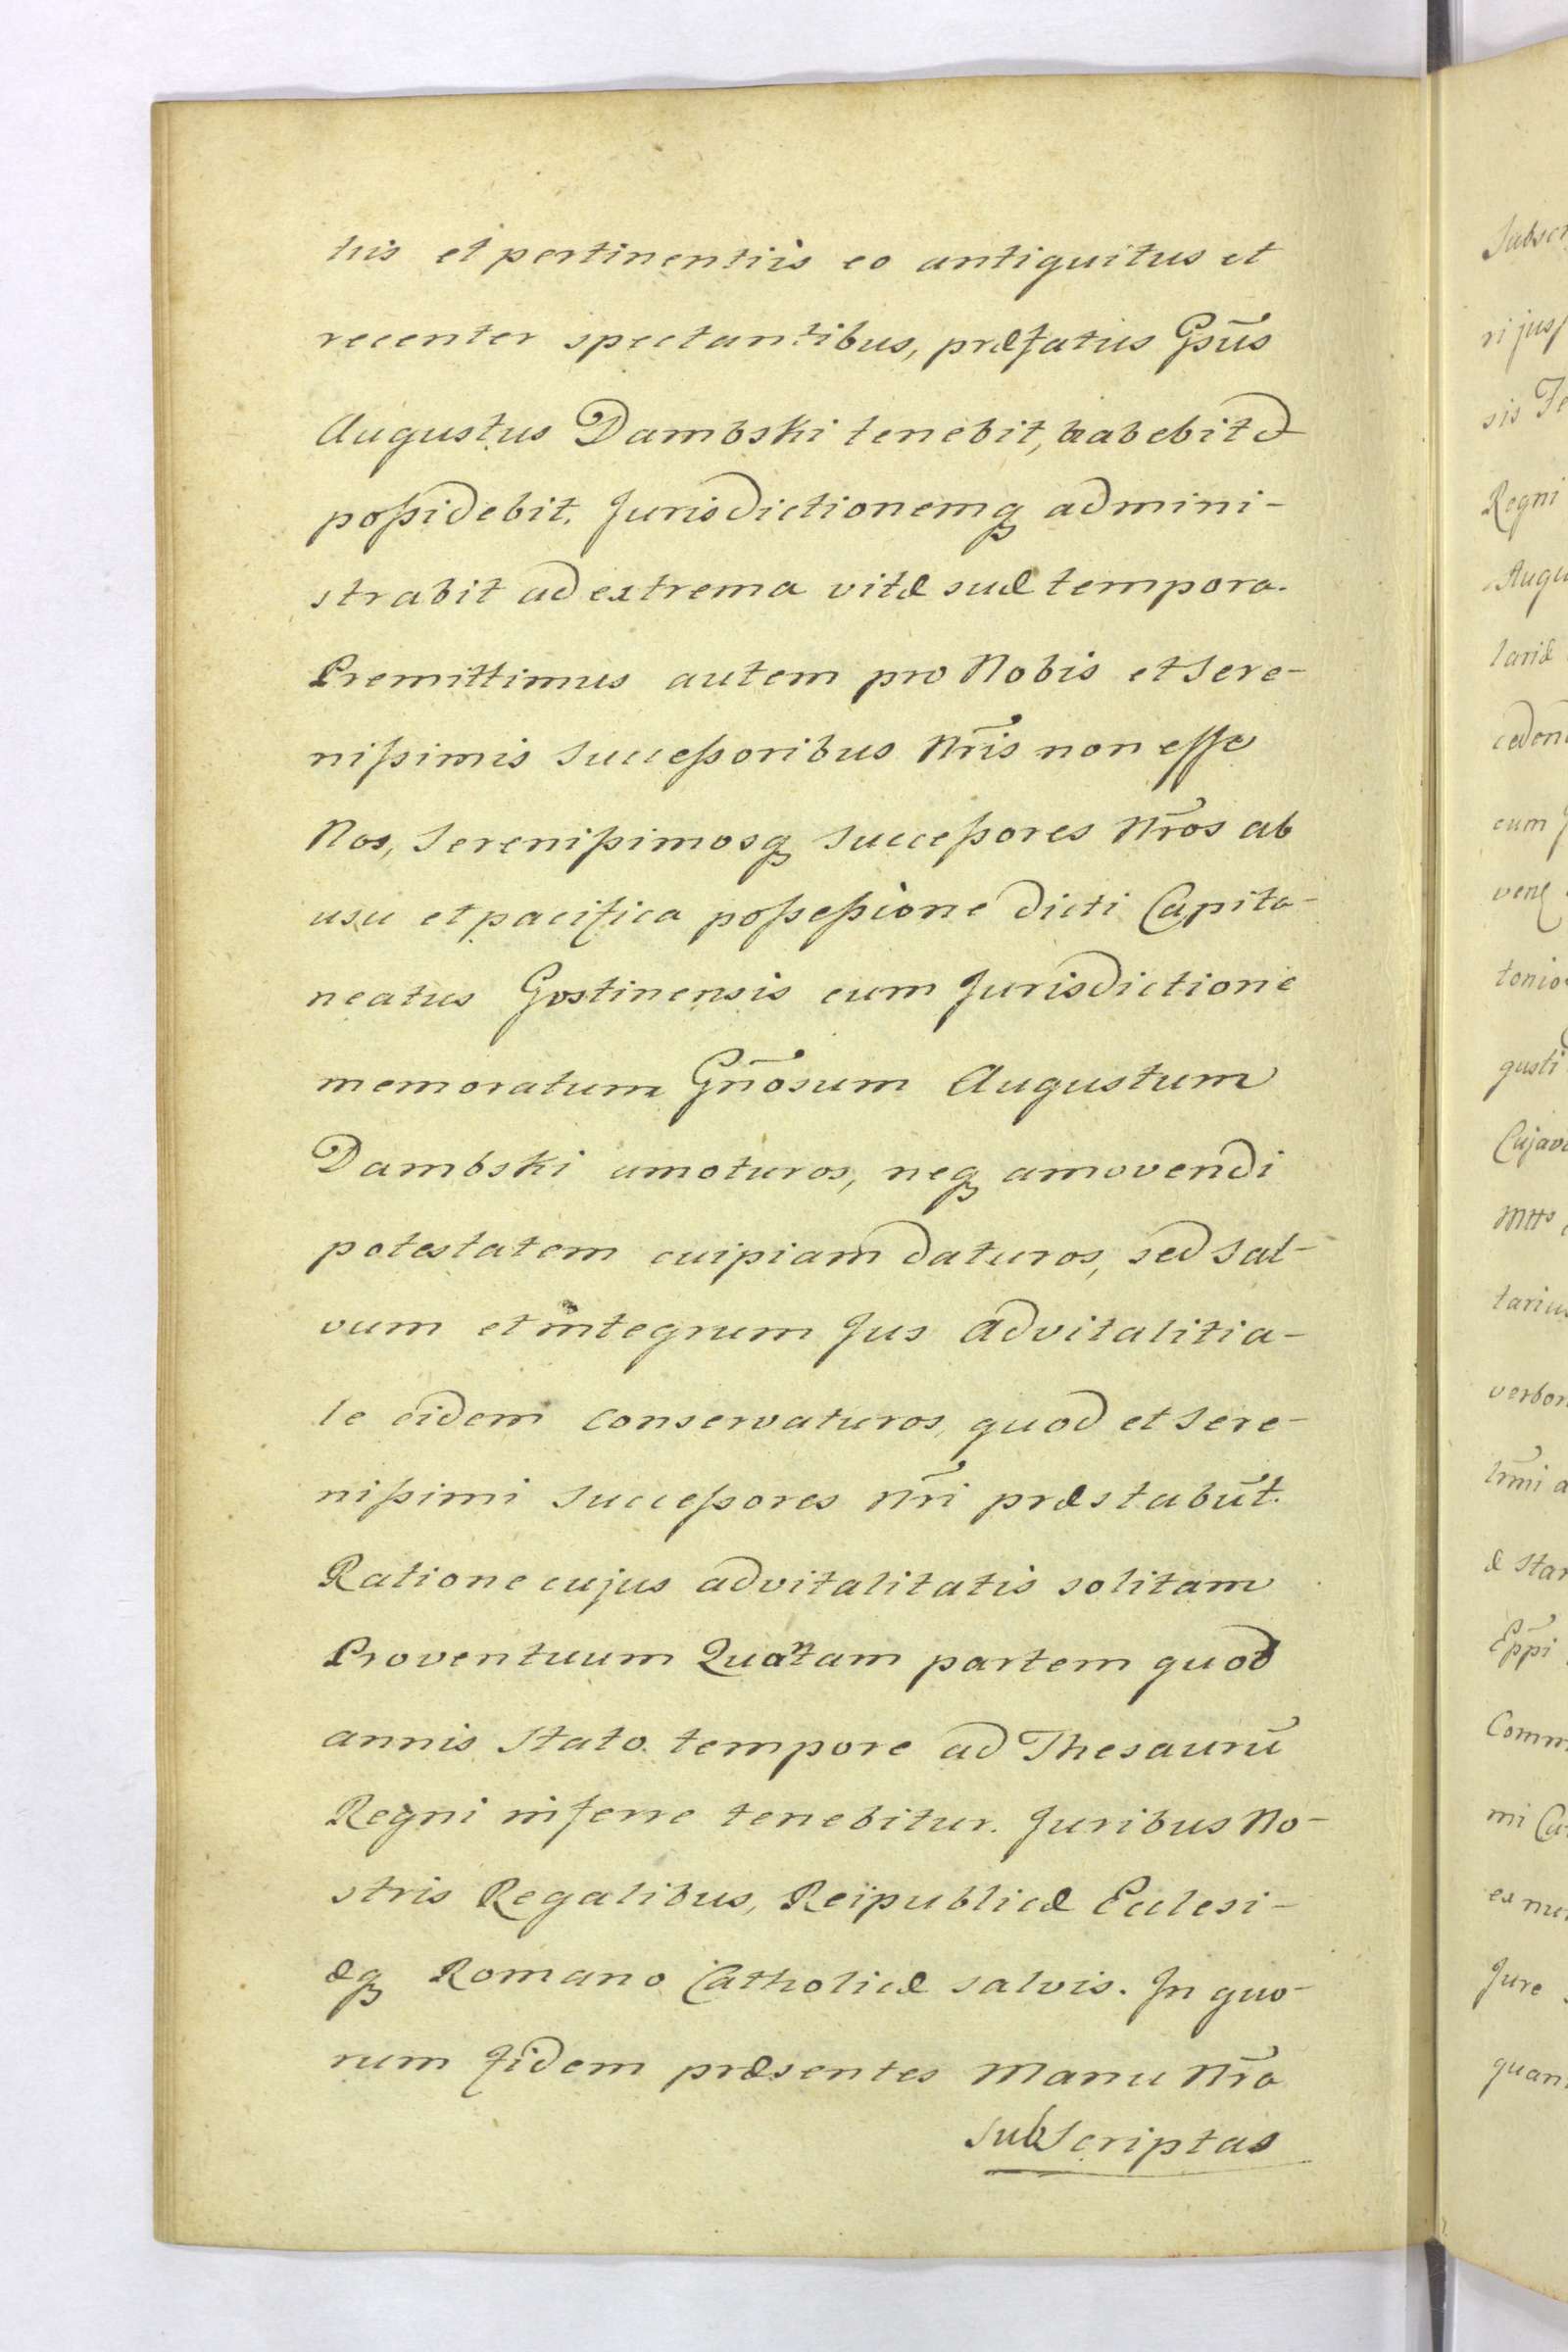 tiis et pertinentiis eo antiquitus et
recenter spectantibus, præfatus Gsũs
Augustus Dambski tenebit, habebit &
poßidebit. Jurisdictionemq admini-
strabit ad extrema vitæ suæ tempora.
Premittimus autem pro Nobis et Sere-
nißimis Succeßoribus Nr̃is non esse
Nos, Serenißimosq Succeßores Nr̃os ab
usu et pacifica poßeßione dicti Capita-
neatus Gostinensis cum Jurisdictione
memoratum Gñosum Augustum
Dambski amoturos, neq amovendi
potestatem cuipiam daturos, sed Sal-
vum et integrum Jus advitalitia-
le eidem conservaturos, quod et Sere-
nißimi Succeßores Nr̃i præstabũt.
Ratione cujus advitalitatis solitam
Proventuum Quartam partem quod
annis Stato tempore ad Thesaurũ
Regni inferre tenebitur. Juribus No-
stris Regalibus, Reipublicæ Ecclesi-
æq Romano Catholicæ salvis. In quo-
rum fidem præsentes Manu Nr̃a
subscriptas
Regni
gusti
Jure